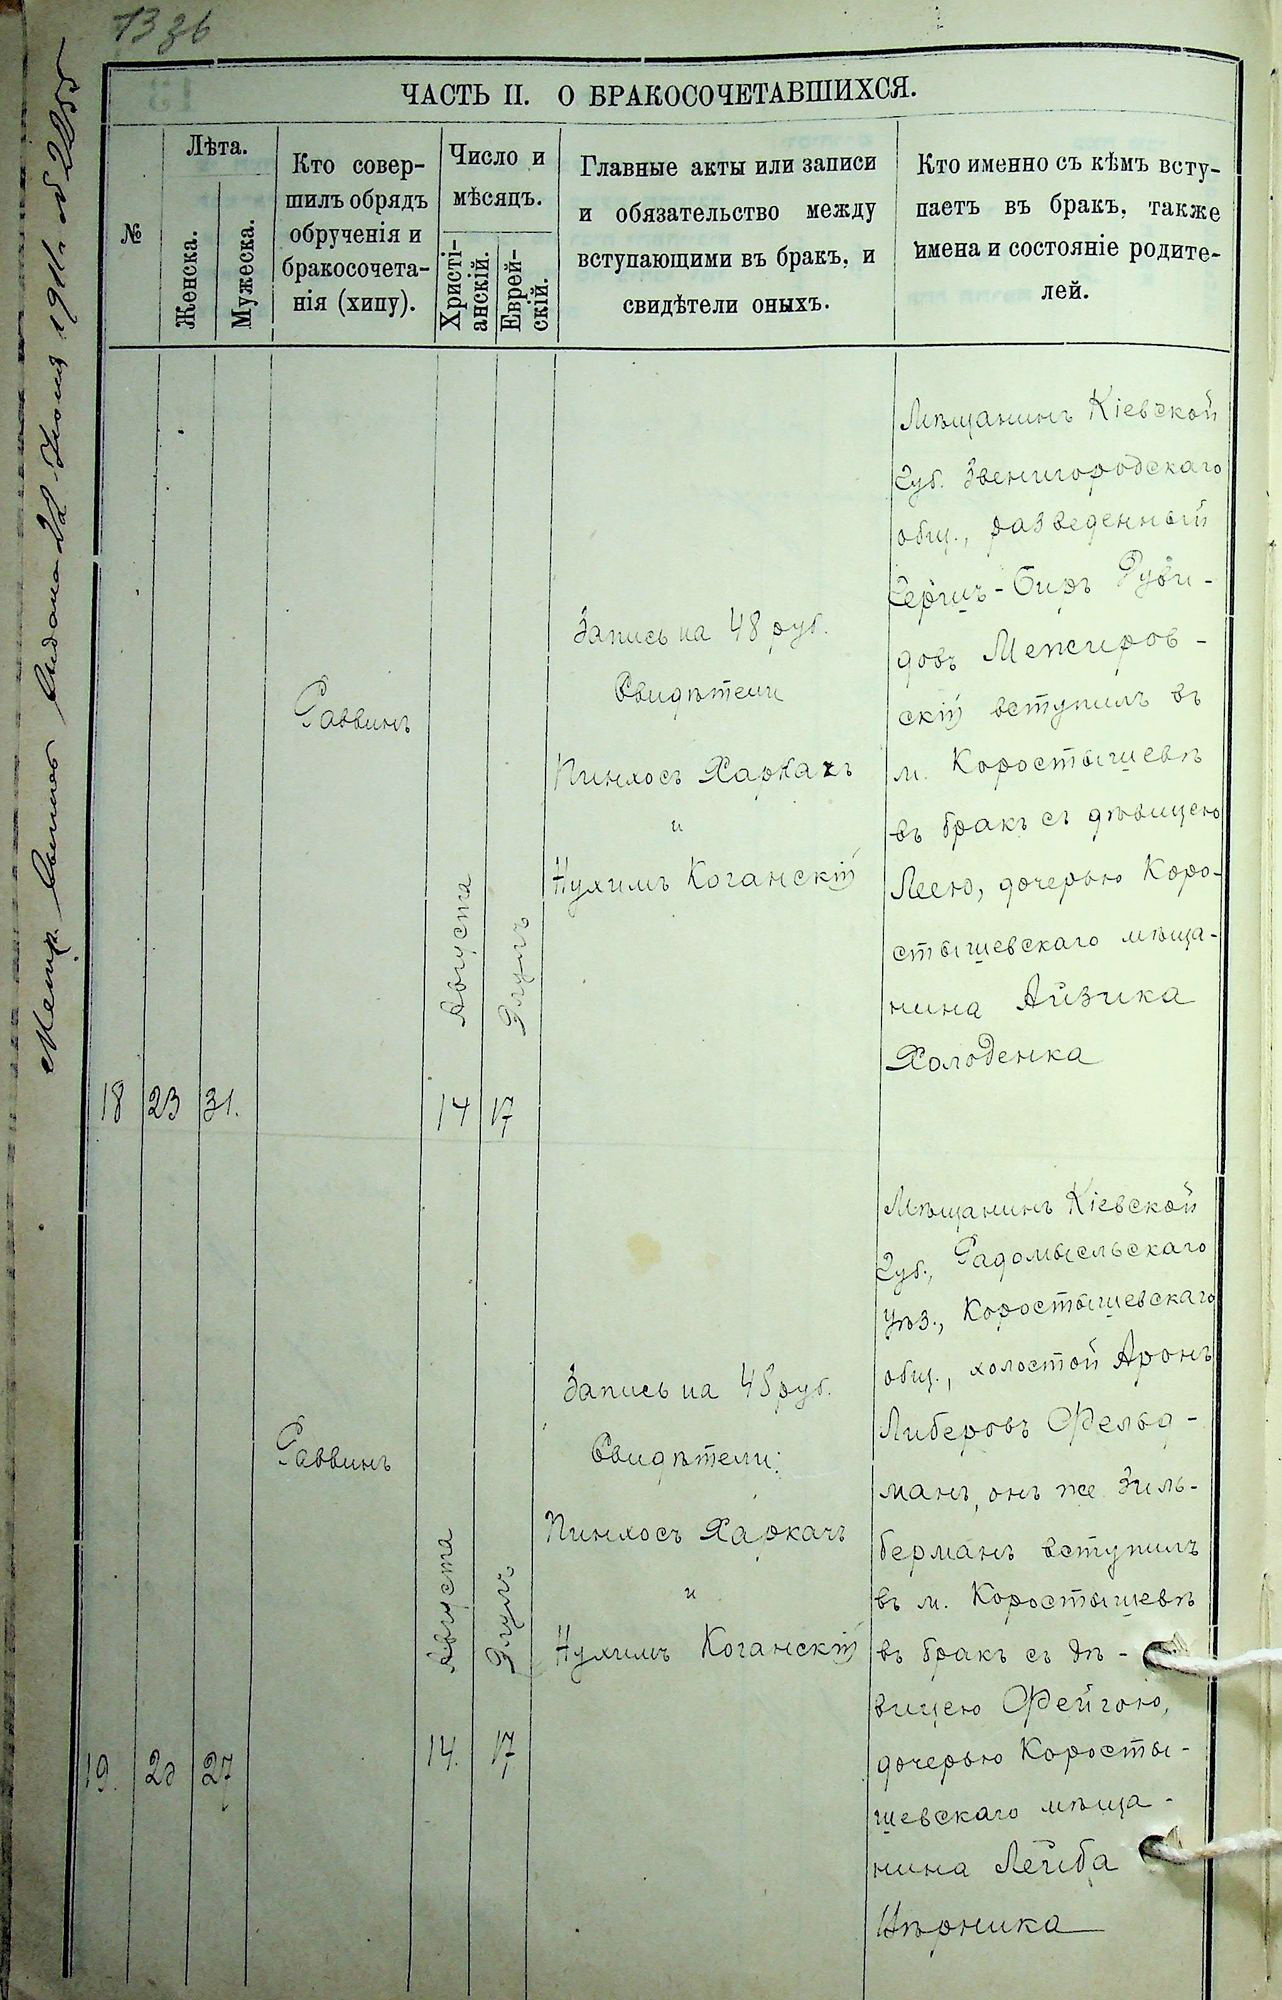 ЧАСТЬ II. О БРАКОСОЧЕТАВШИХСЯ.
№
Лѣта.
Женска.
Мужеска.
Кто совер-
шилъ обрядъ
обрученія и
бракосочета-
нія (хипу).
Число и
мѣсяцъ.
Христі-
анскій.
Еврей-
скій.
Главные акты или записи
и обязательство между
вступающими въ бракъ, и
свидѣтели оныхъ.
Кто именно съ кѣмъ всту-
паетъ въ бракъ, также
имена и состояніе родите-
лей.
18
23
31.
Раввинъ
Августа
14
Элулъ
17
Запись на 48 руб.
Свидѣтели
Пинхосъ Харкачъ
и
Нухимъ Коганскій
Мѣщанинъ Кіевской
Губ. Звенигородскаго
общ., разведенный
Гершъ-Беръ Руви-
довъ Межиров-
скій вступилъ въ
м. Коростышевѣ
въ бракъ съ дѣвицею
Леею, дочерью Коро-
стышевскаго мѣща-
нина Айзика
Холоденка
19.
20
27
Раввинъ
Августа
14.
Элулъ
17
Запись на 48 руб.
Свидѣтели:
Пинхосъ Харкачъ
и
Нухимъ Коганскій
Мѣщанинъ Кіевской
Губ., Радомысльскаго
уѣз., Коростышевскаго
общ., холостой Аронъ
Либеровъ Фельд-
манъ, онъ же Зиль-
берманъ вступилъ
въ м. Коростышевѣ
въ бракъ съ дѣ-
вицею Фейгою,
дочерью Коросты-
шевскаго мѣща-
нина Лейба
Цѣрника
Метр. выпись выдана 22 Іюня 1911 г. №